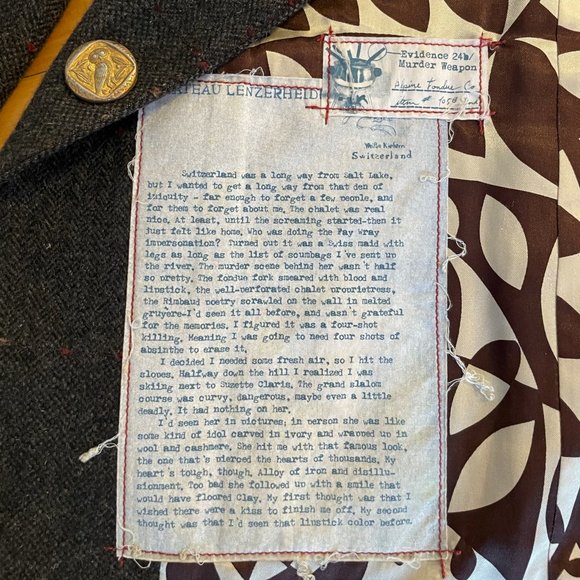 Evidence 24b/
Murder Weapon
Alpine Fondue Co
item #
ATEAU LENZERHEID
Switzerland
Switzerland was a long way from Salt Lake,
but I wanted to get a long way from that den of
iniquity - far enough to forget a few people, and
for them to forget about me. The chalet was real
nice. At least, until the screaming started-then it
just felt like home. Who was doing the Fay Wray
impersonation? Turned out it was a Swiss maid with
legs as long as the list of scumbags I've sent up
the river. The murder scene behind her wasn't half
so pretty. The fondue fork smeared with blood and
lipstick, the well-perforated chalet proprietress,
the Rimbaud poetry scrawled on the wall in melted
gruyere-I'd seen it all before, and wasn't grateful
for the memories. I figured it was a four-shot
killing. Meaning I was going to need four shots of
absinthe to erase it.
I decided I needed some fresh air, so I hit the
slopes. Halfway down the hill I realized I was
skiing next to Suzette Claris. The grand slalom
course was curvy, dangerous, maybe even a little
deadly. It had nothing on her.
I'd seen her in pictures, in person she was like
some kind of idol carved in ivory and wrapped up in
wool and cashmere. She hit me with that famous look,
the one that's pierced the hearts of thousands. My
heart's tough, though. Alloy of iron and disillu-
sionment. Too bad she followed up with a smile that
would have floored Clay. My first thought was that I
wished there were a kiss to finish me off. My second
thought was that I'd seen that lipstick color before.